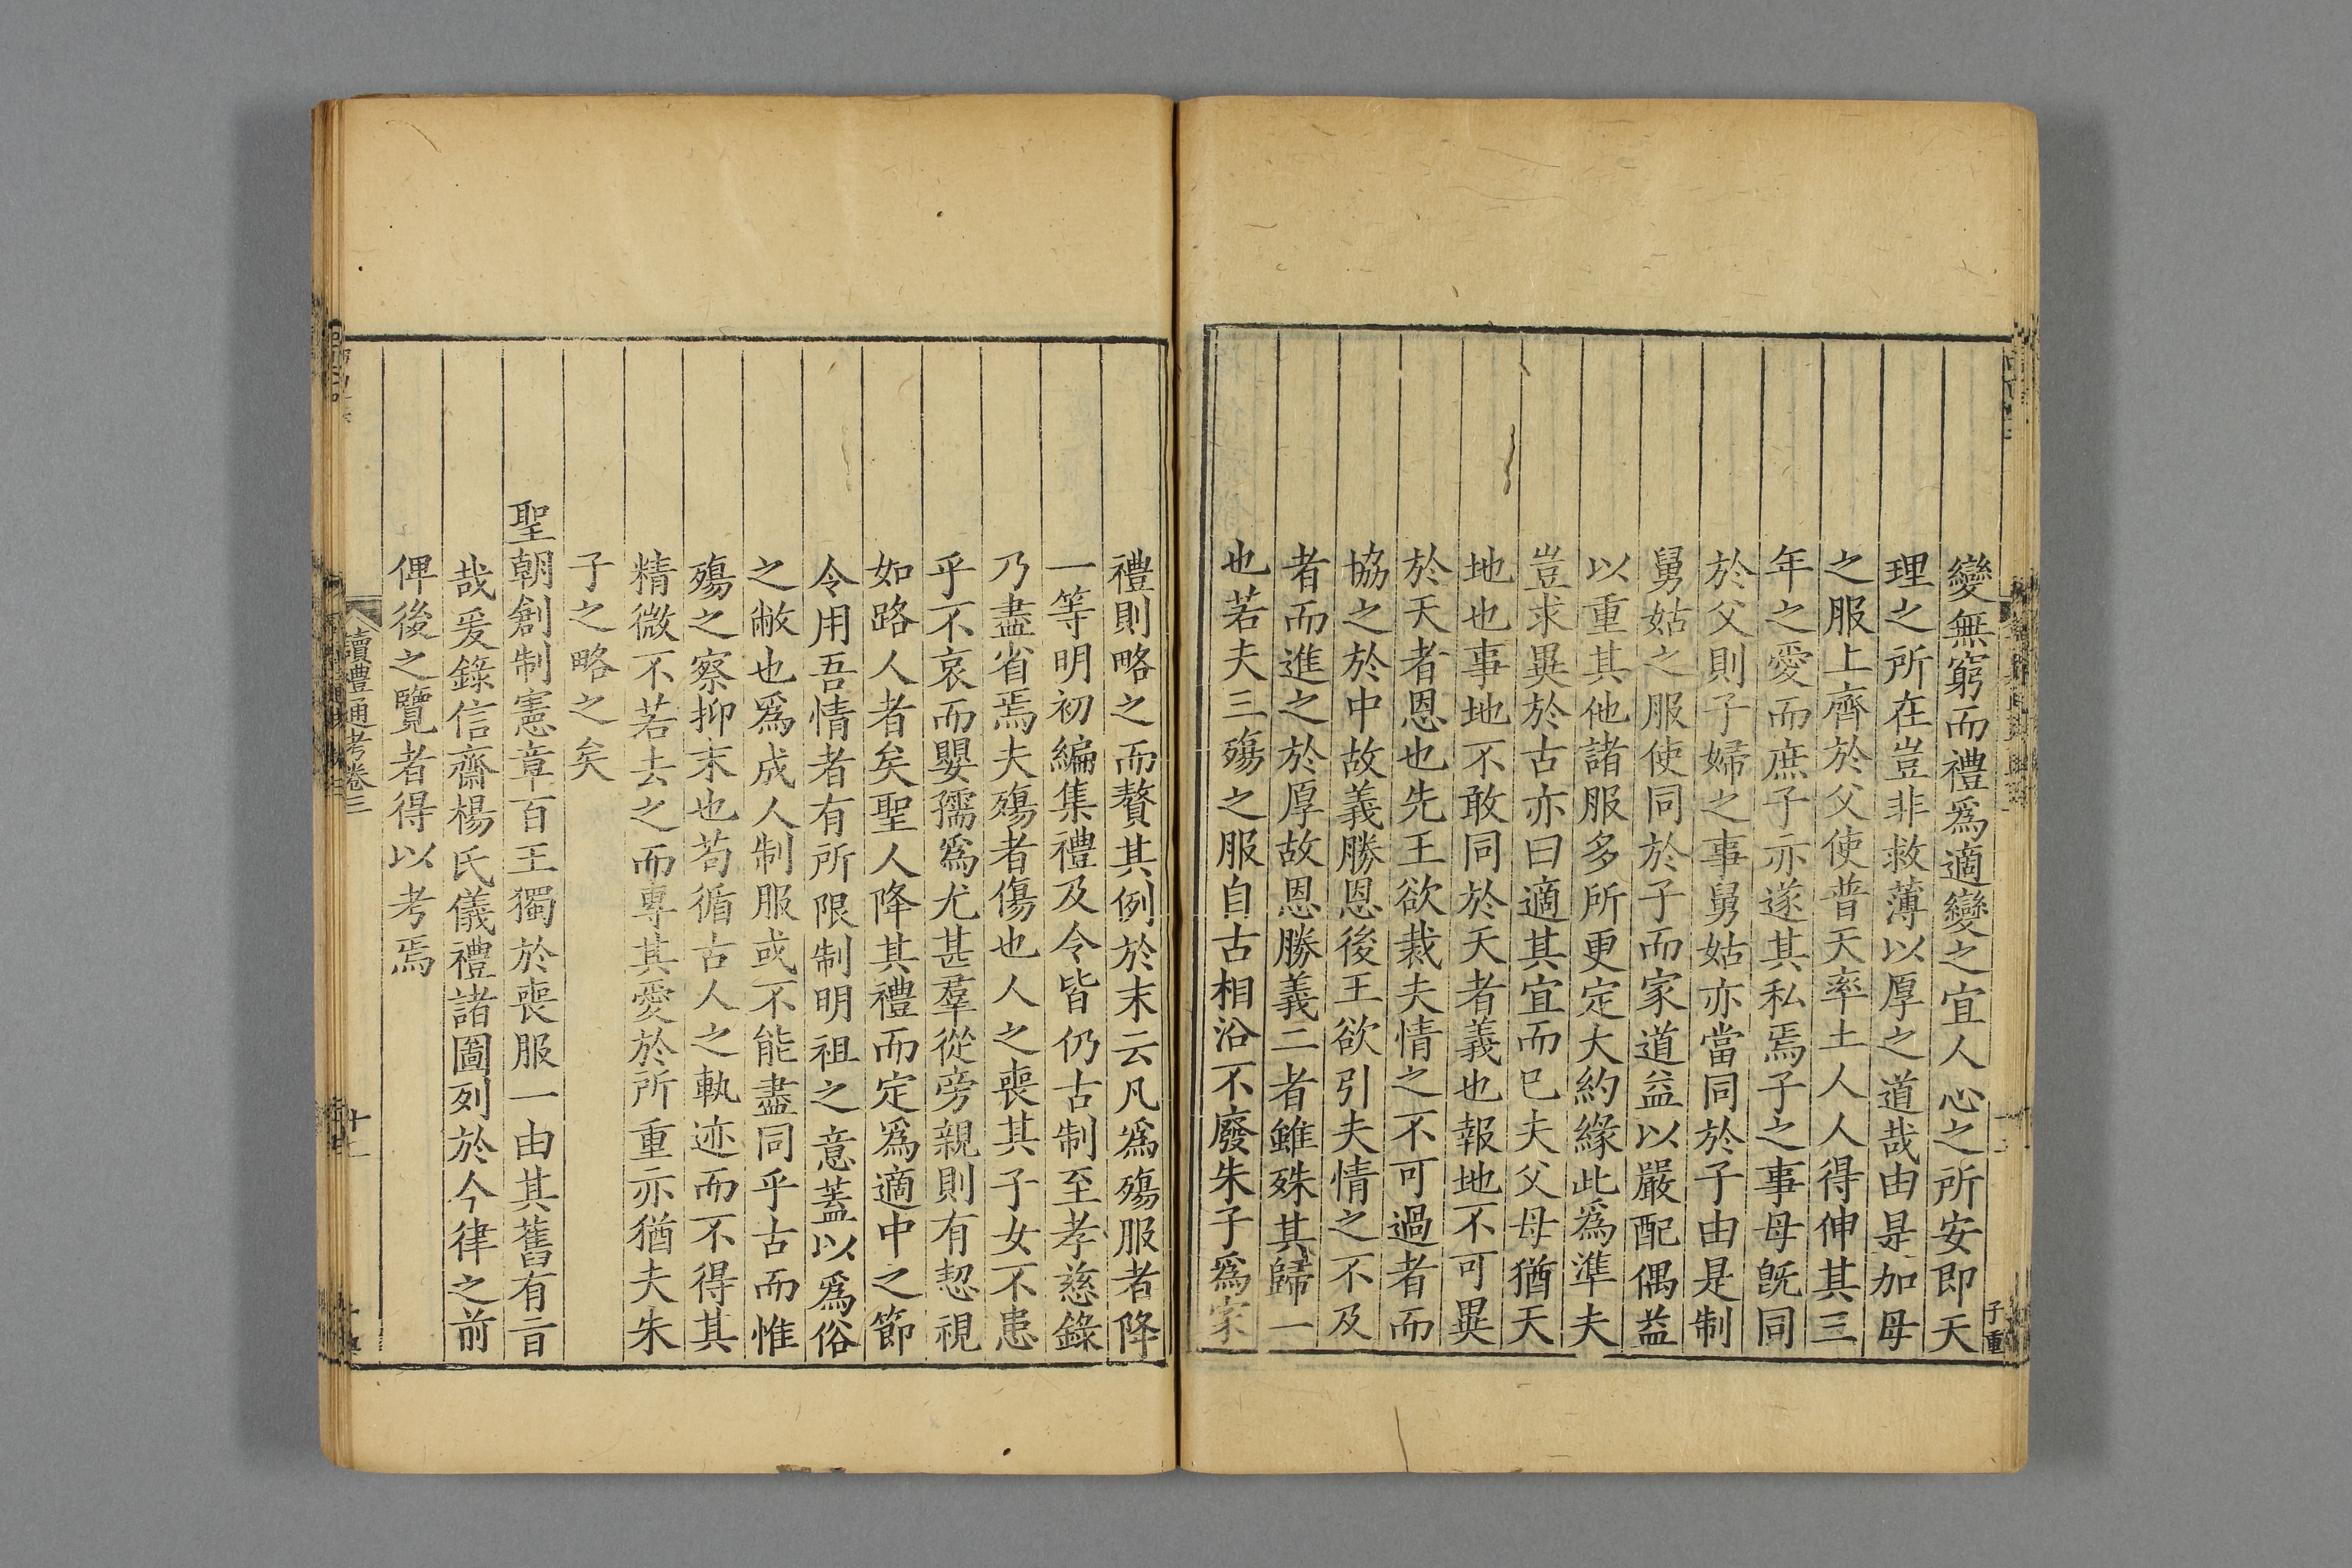 變無窮而禮爲適變之宜人心之所安即天
理之所在豈非救薄以厚之道哉由是加母
之服上齊於父使普天率土人人得伸其三
年之愛而庶子亦遂其私焉子之事母旣同
於父則子婦之事舅姑亦當同於子由是制
舅姑之服使同於子而家道益以嚴配偶益
以重其他諸服多所更定大約緣此爲準夫
豈求異於古亦曰適其宜而已夫父母猶天
地也事地不敢同於天者義也報地不可異
於天者恩也先王欲裁夫情之不可過者而
協之於中故義勝恩後王欲引夫情之不及
者而進之於厚故恩勝義二者雖殊其歸一
也若夫三殤之服自古相沿不廢朱子爲家
子重
禮則略之而贅其例於末云凡爲殤服者降
一等明初編集禮及令皆仍古制至孝慈錄
乃盡省焉夫殤者傷也人之喪其子女不患
乎不哀而嬰孺爲尤甚羣從旁親則有恝視
如路人者矣聖人降其禮而定爲適中之節
令用吾情者有所限制明祖之意蓋以爲俗
之敝也爲成人制服或不能盡同乎古而惟
殤之察抑末也苟循古人之軌迹而不得其
精微不若去之而專其愛於所重亦猶夫朱
子之略之矣
聖朝創制憲章百王獨於喪服一由其舊有㫖
哉爰錄信齋楊氏儀禮諸圖列於今律之前
俾後之覽者得以考焉
讀禮通考卷三